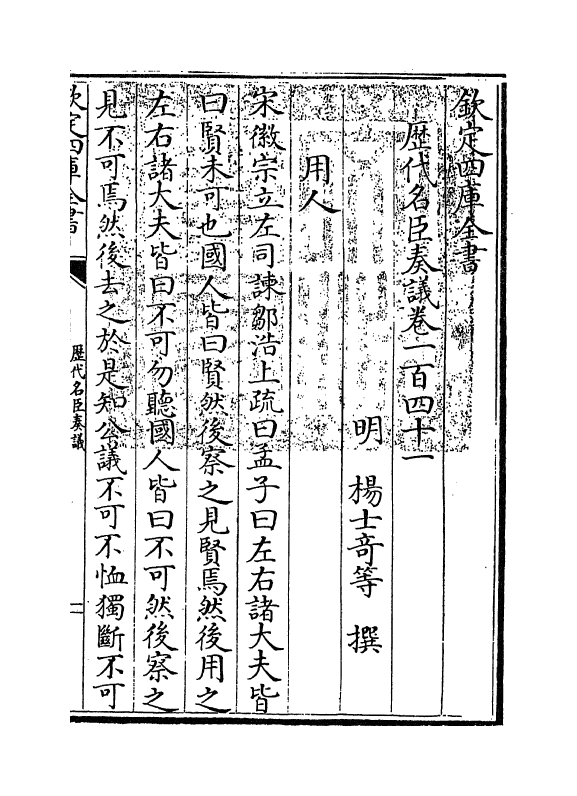 欽定四庫全書
歴代名臣奏議卷一百四十一
明 楊士竒等 撰
用人
宋徽宗立左司諫鄒浩上疏曰孟子曰左右諸大夫皆
曰賢未可也國人皆曰賢然後察之見賢焉然後用之
左右諸大夫皆曰不可勿聽國人皆曰不可然後察之
見不可焉然後去之於是知公議不可不恤獨斷不可
欽定四庫全書
歴代名臣奏議